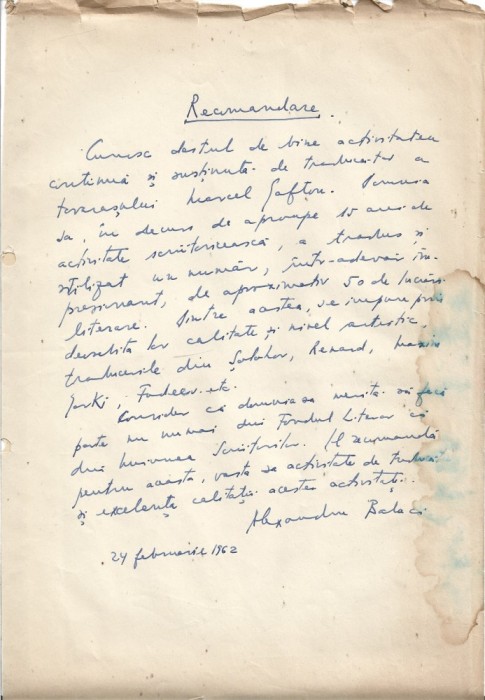 Recomandare
Cunosc destul de bine activitatea
continuă și susținută de traducător a
tovarășului Marcel Gafton. Domnia
sa, în decurs de aproape 15 ani de
activitate scriitoricească, a tradus și
stilizat un număr, într-adevăr im-
presionant, de aproximativ 50 de lucrări
literare. Dintre acestea, se impune prin
deosebita lor calitate și nivel artistic,
traducerile din Șolohov, Renard, Maxim
Gorki, Fadeev etc.
Consider că domnia sa merită să facă
parte nu numai din Fondul Literar ci
din Uniunea Scriitorilor. Îl recomandă
pentru aceasta, vasta sa activitate de traducător
și excelența calității acestei activități.
Alexandru Balaci
24 februarie 1962